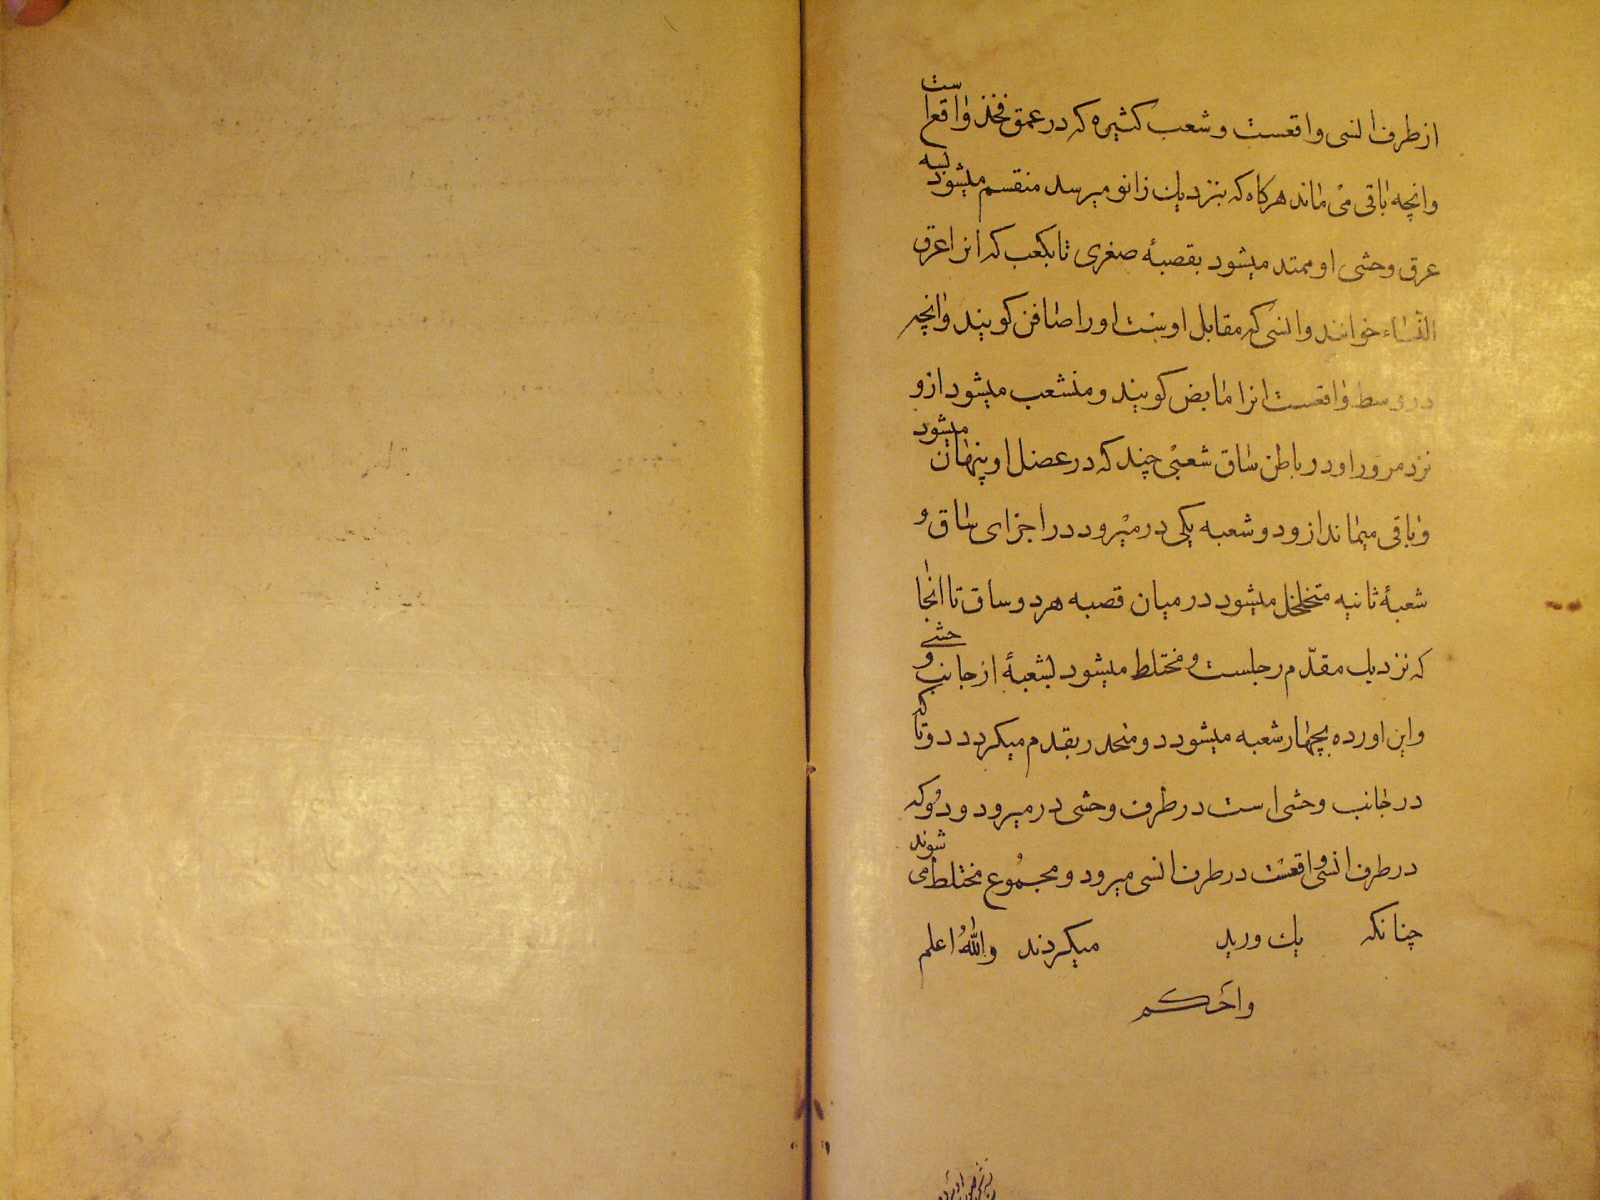 از طرف انسی واقعست و شعب کثیره که در عمق فخذ واقع است
وانچه باقی می ماند هرکاه که بنزدیك زانو میرسد منقسم میشود بسه
عرق وحشی او ممتد میشود بقصبهٔ صغری تا بکعب که انرا عرق
النساء خوانند وانسی که مقابل اوست اورا صافن کویند وانچه
در وسط واقعست انرا مابض کویند و منشعب میشود ازو
نزد مرور او در باطن ساق شعبی چند که در عضل او پنهان میشود
و باقی میماند ازو دو شعبه یکی در میرود در اجزای ساق و
شعبهٔ ثانیه متخلخل میشود در میان قصبه هر دو ساق تا انجا
که نزدیك مقدّم رجلست و مختلط میشود بشعبهٔ از جانب وحشی
واین اورده بچهار شعبه میشود و منحدر بقدم میکردد دوتا که
در جانب وحشی است در طرف وحشی در میرود و دو که
در طرف انسی واقعست در طرف انسی میرود و مجموع مختلط می شوند
چنانکه یك ورید میکردند واللهُ اعلم
واحکم